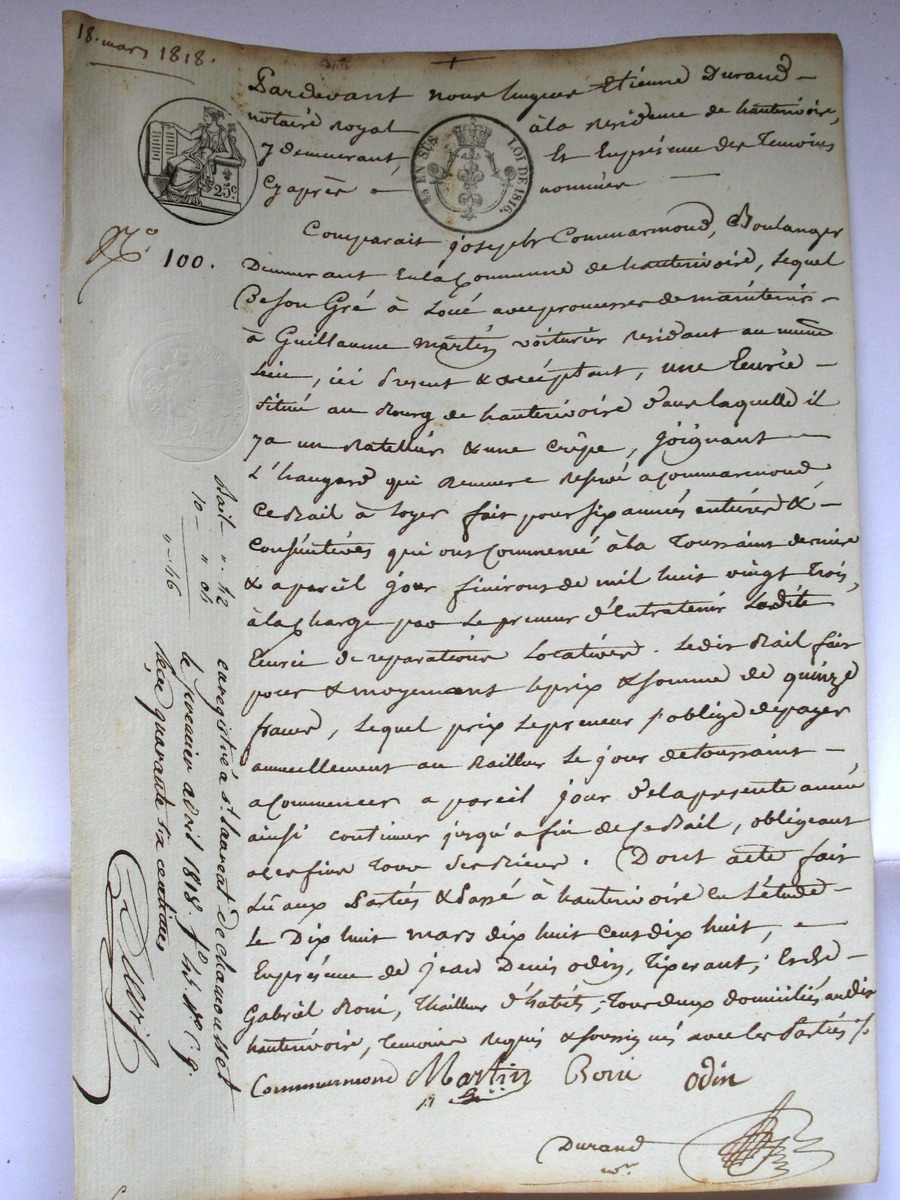 18. mars 1818.
Pardevant nous hugues Etienne Durand
notaire royal à la residence de hauterivoire,
y demeurant Et Enprésence des Temoins
Cy après nommés
25c.
EN SUS LOI DE 1816.
N.o 100.
Comparait joseph Commarmond, Boulanger
Demeurant En la Commune de hauterivoire, Lequel
De son Gré à Loué avec promesse de maintenir
à Guillaume Martin voiturier residant au même
Lieu, ici present & acceptant, une Ecurie
située au Bourg de hauterivoire dans laquelle il
y a un Ratellier & une crêpe, joignant
L'hangard qui demeure reservé a Commarmond
Ce Bail à Loyer fait pour six années entières &
Conséutives qui ont Commencé à la Toussaint derniere
& a pareil jour finirons de mil huit vingt trois,
à la Charge par Le preneur d'Entretenir Ladite
Ecurie de reparations Locatives. Ledit Bail fait
pour & moyennant le prix & somme de quinze
francs, Lequel prix Le preneur s'oblige de payer
annuellement au Bailleur Le jour de toussaint
a Commencer a pareil jour de la presente année
ainsi continuer jusqu'a fin de Ce Bail, obligeant
a ces fins Tous Ses Biens. Dont acte fait
Lu aux Parties & Passé à hauterivoire En L'étude
Le Dix huit mars dix huit Cent dix huit,
Enprésence de jean Denis odin, Tixerant, Et de
Gabriel Boni, Thailleur d'habits, Tous deux domiciliés audit
hauterivoire, Temoins Requis & soussignés avec les Parties
Commarmond Martin Boni odin
Durand
nre
Bail " - 42
10 - " 04
" - 46
enregistré à St Laurent de chamousset
le premier avril 1818. fo 45 Vo C. 9.
Reçu quarante six centimes